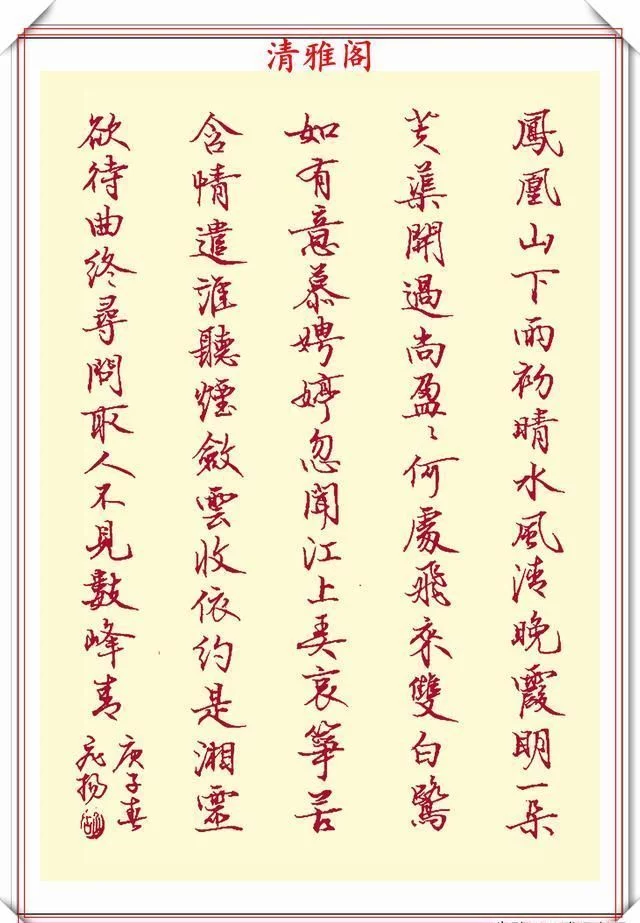 清雅阁
鳳凰山下雨初晴水風清晚霞明一朵
芙蕖開過尚盈〻何處飛來雙白鷺
如有意慕娉婷忽聞江上弄哀箏苦
含情遣誰聽煙斂雲收依約是湘靈
欲待曲終尋問取人不見數峰青
庚子春